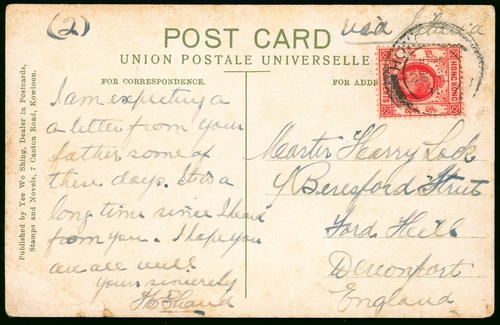 (2)
via Siberia
POST CARD
UNION POSTALE UNIVERSELLE
FOR CORRESPONDENCE.
FOR ADDR
HONG KONG
I am expecting a
a letter from your
father some of
these days. It is a
long time since I heard
from you. I hope you
are all well.
Yours sincerely
Master Harry Lock
Beresford Street
Ford Hill
Devonport
England
Published by Yee Wo Shing, Dealer in Postcards,
Stamps and Novels, 7 Canton Road, Kowloon.